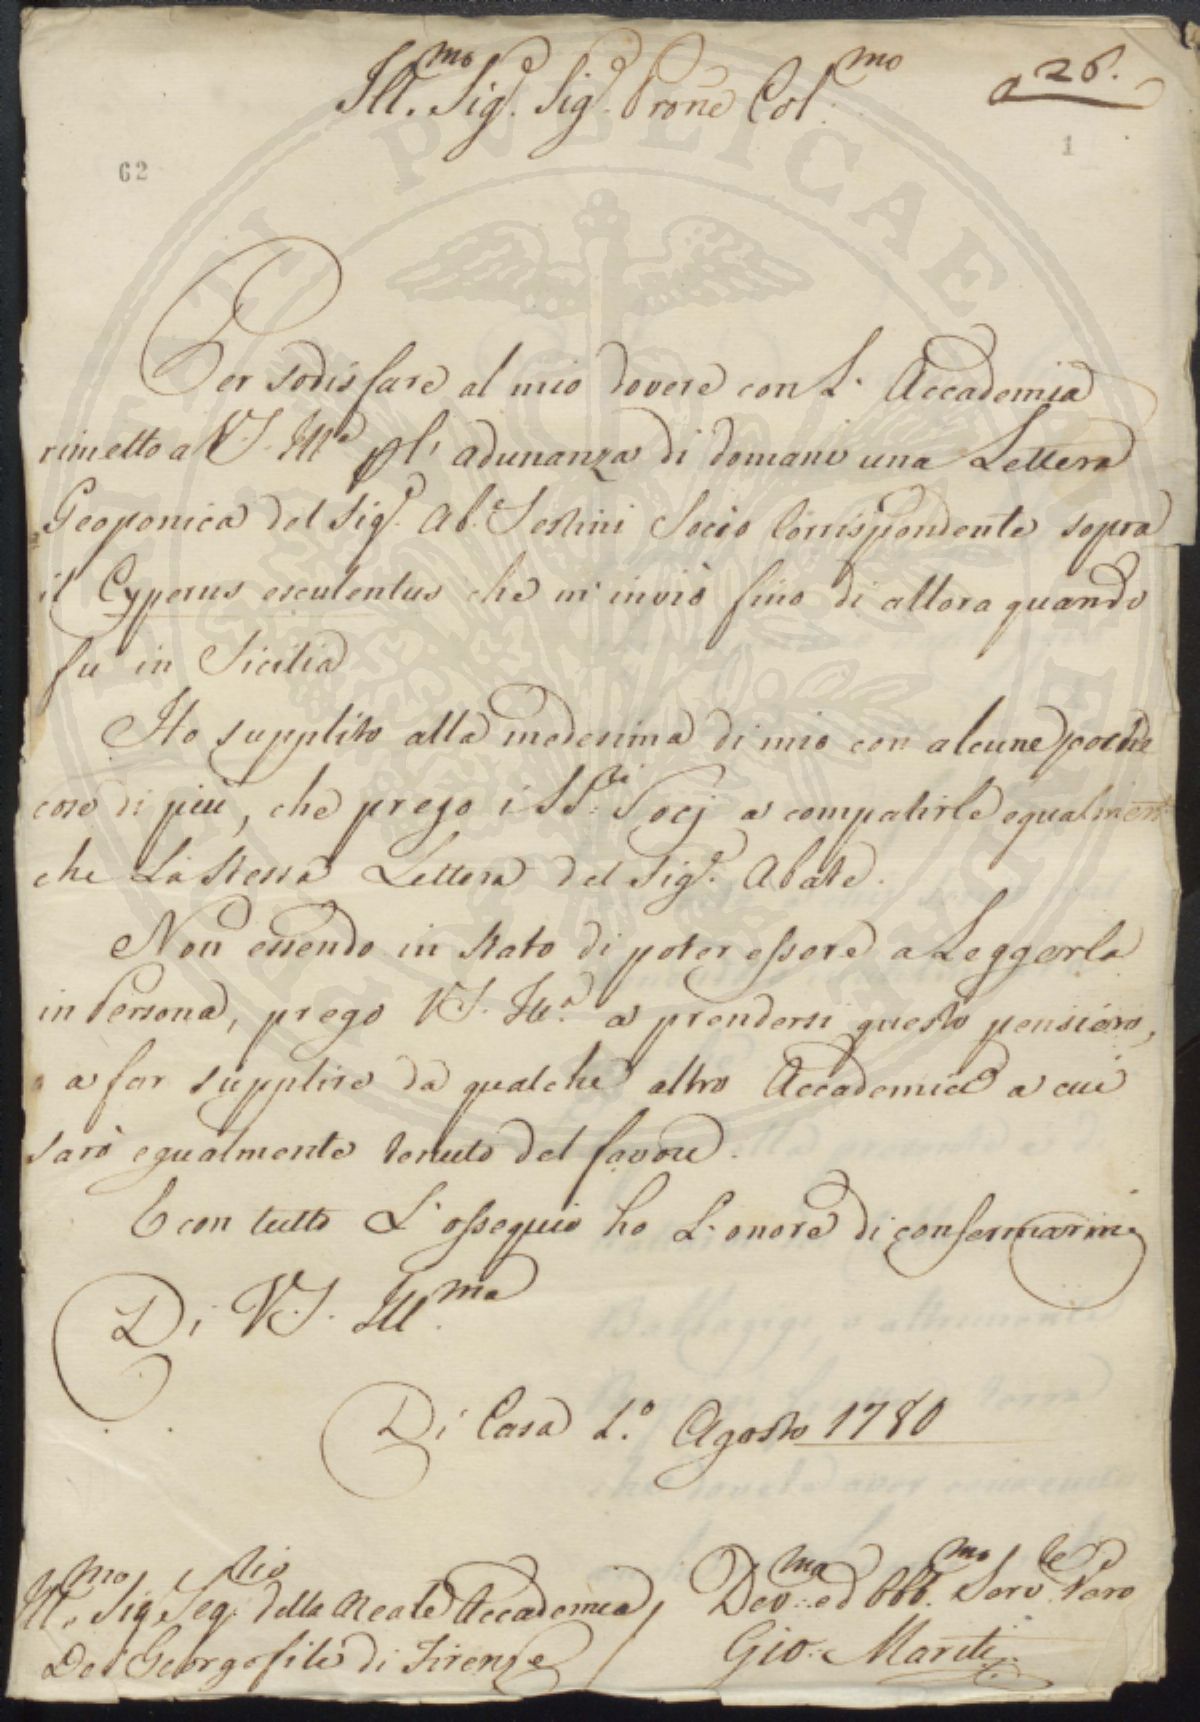 26.
Ill.mo Sig.e Sig.e Prone Col.mo
62
1
Per sodisfare al mio dovere con L'Accademia
rimetto a V.S. Ill.a p l'adunanza di domani una Lettera
Geoponica del Sig.e Ab.e Sestini Socio Corrispondente sopra
il Cyperus esculentus che m'inviò fino di allora quando
fu in Sicilia
Ho supplito alla medesima di mio con alcune poche
cose di più, che prego i SS.ri Socj a compatirle egualment
che La stessa Lettera del Sig.e Abate.
Non essendo in stato di poter essere a Leggerla
in Persona, prego V.S. Ill.a a prendersi questo pensiero,
o a far supplire da qualche altro Accademico a cui
sarò egualmente tenuto del favore.
E con tutto L'ossequio ho L'onore di confermarmi
Di V.S. Ill.ma
Di Casa L.o Agosto 1780
Ill.mo Sig Seg.rio della Reale Accademia
Dei Georgofili di Firenze
Dev.mo ed Obb.mo Serv.re Vero
Gio. Mariti
PUBLICAE